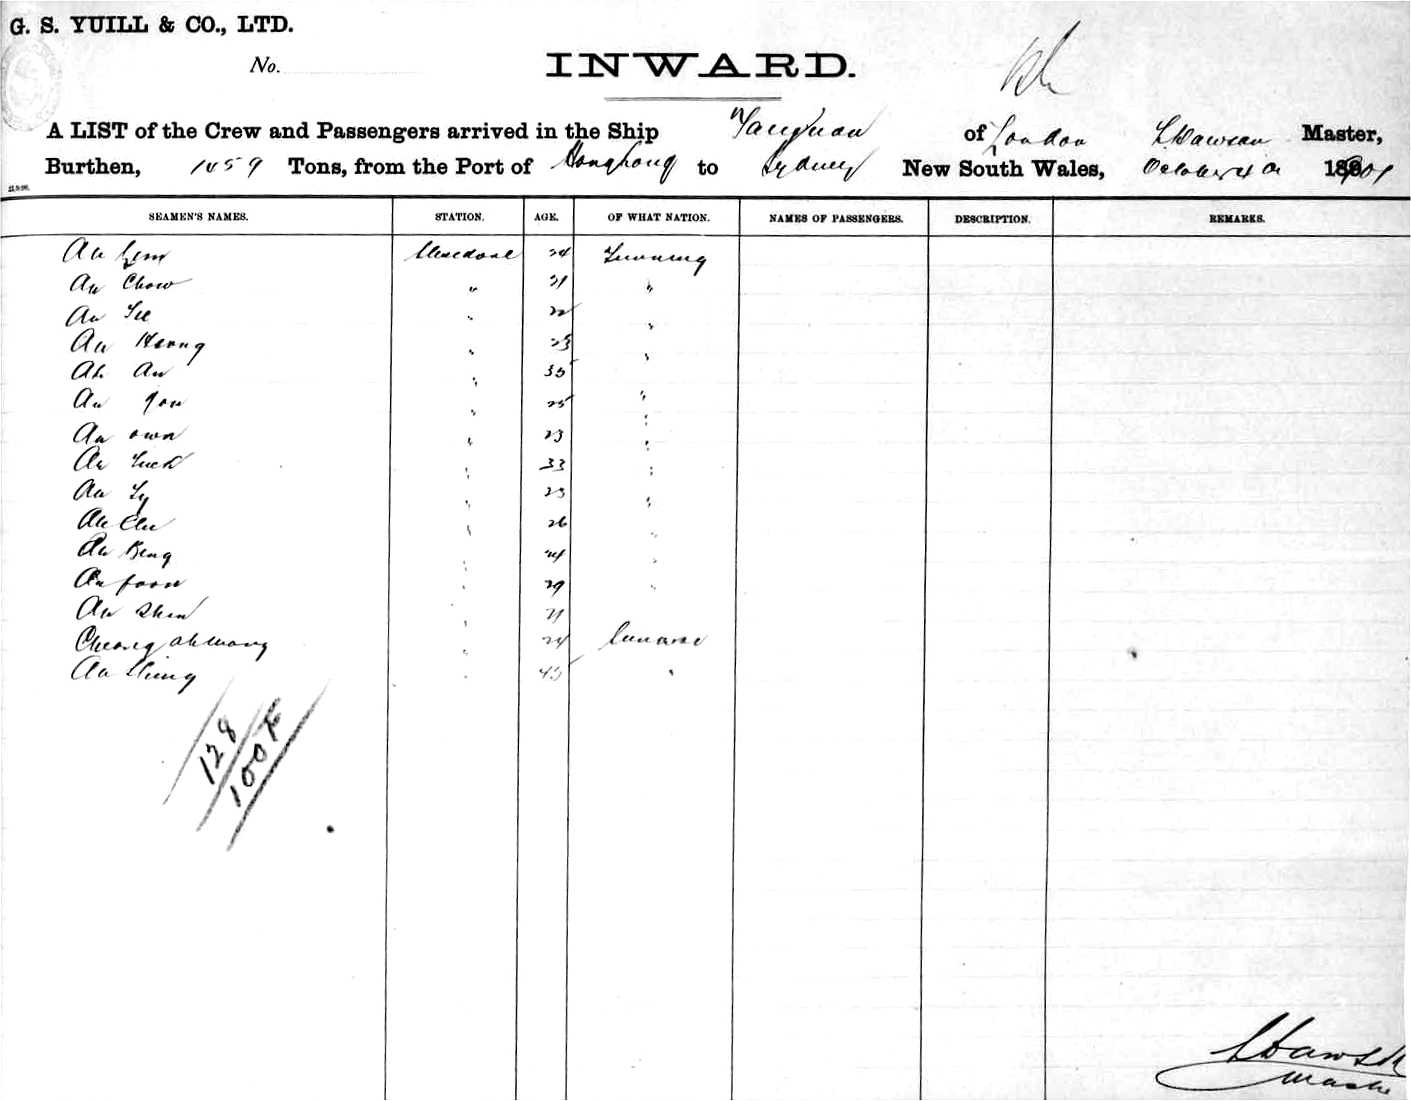 G. S. YUILL & CO., LTD.
No.
INWARD.
A LIST of the Crew and Passengers arrived in the Ship Taiyuan of London Master,
Burthen, 1459 Tons, from the Port of Hongkong to Sydney New South Wales, October 1901
SEAMEN'S NAMES. STATION. AGE. OF WHAT NATION. NAMES OF PASSENGERS. DESCRIPTION. REMARKS.
Ah 24
Ah Chow " 21 "
Ah See " 22 "
Ah Hoong " 23 "
Ah An " 35 "
Ah You " 25 "
Ah own " 23 "
Ah Tuck " 33 "
Ah Sy " 23 "
Ah Chu " 26 "
Ah Keng " 24 "
Ah foon " 29 "
Ah Shin " 21
Cheong ah wong " 24
Ah " 43 "
128
100
Master